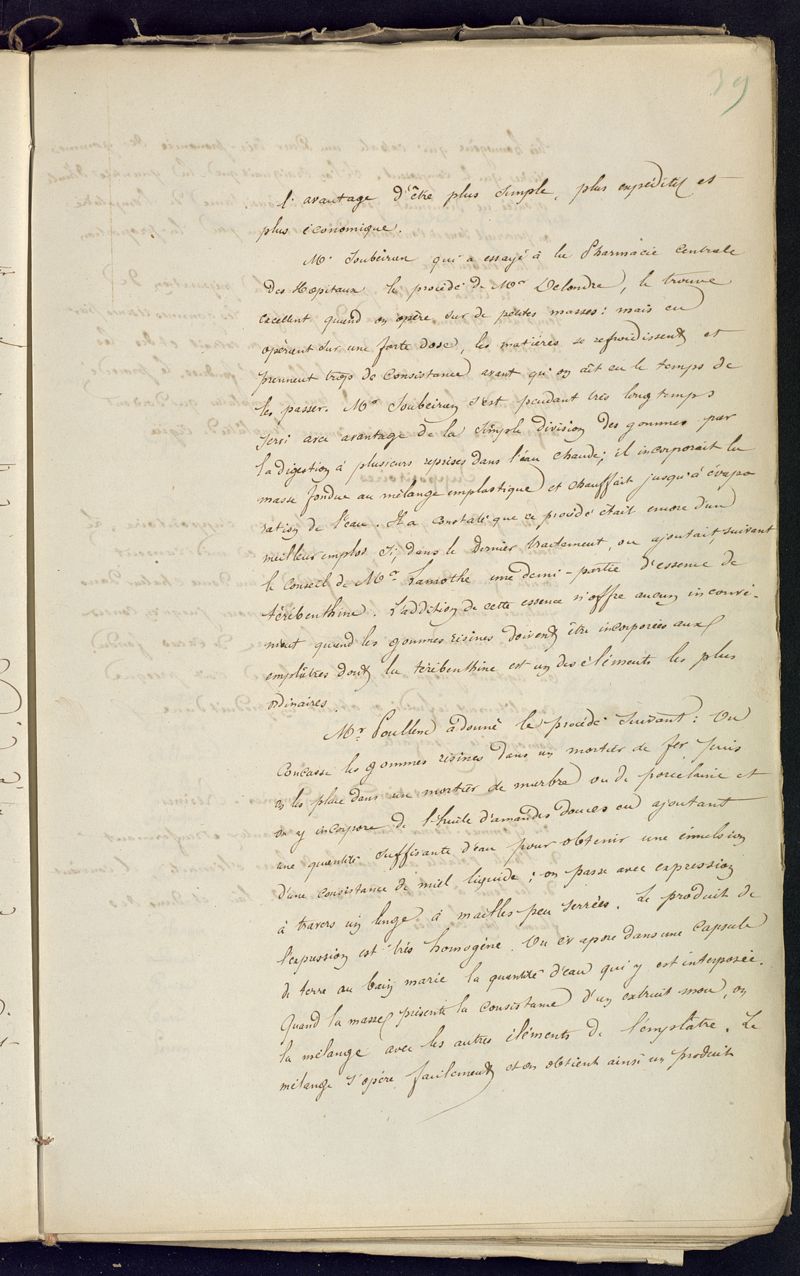 39
l'avantage d'être plus simple, plus expéditif et
plus économique.
Mr Soubeiran qui a essayé à la Pharmacie Centrale
des Hopitaux le procédé de Mr Delondre, le trouve
excellent quand on opère sur de petites masses: mais en
opérant sur une forte dose, les matières se refroidissent et
prennent trop de consistance avant qu'on ait eu le temps de
les passer. Mr Soubeiran s'est pendant très long temps
servi avec avantage de la simple division des gommes par
la digestion à plusieurs reprises dans l'eau chaude; il incorporait la
masse fondue au mélange emplastique et chauffait jusqu'à évapo
ration de l'eau. Il a constaté que ce procédé était encore d'un
meilleur emploi si, dans le dernier traitement, on ajoutait suivant
le conseil de Mr Lamothe une demi-partie d'essence de
térébenthine. L'addition de cette essence n'offre aucun inconvé-
nient quand les gommes résines doivent être incorporées aux
emplâtres dont la térébenthine est un des éléments les plus
ordinaires.
Mr Poullenc a donné le procédé suivant: On
concasse les gommes résines dans un mortier de fer puis
on les place dans un mortier de marbre ou de porcelaine et
on y incorpore de l'huile d'amandes douces en ajoutant
une quantité suffisante d'eau pour obtenir une émulsion
d'une consistance de miel liquide; on passe avec expression
à travers un linge à mailles peu serrées. Le produit de
l'expression est très homogène. On évapore dans une capsule
de terre au bain marie la quantité d'eau qui y est interposée.
Quand la masse présente la consistance d'un extrait mou, on
la mélange avec les autres éléments de l'emplâtre. Le
mélange s'opère facilement et on obtient ainsi un produit